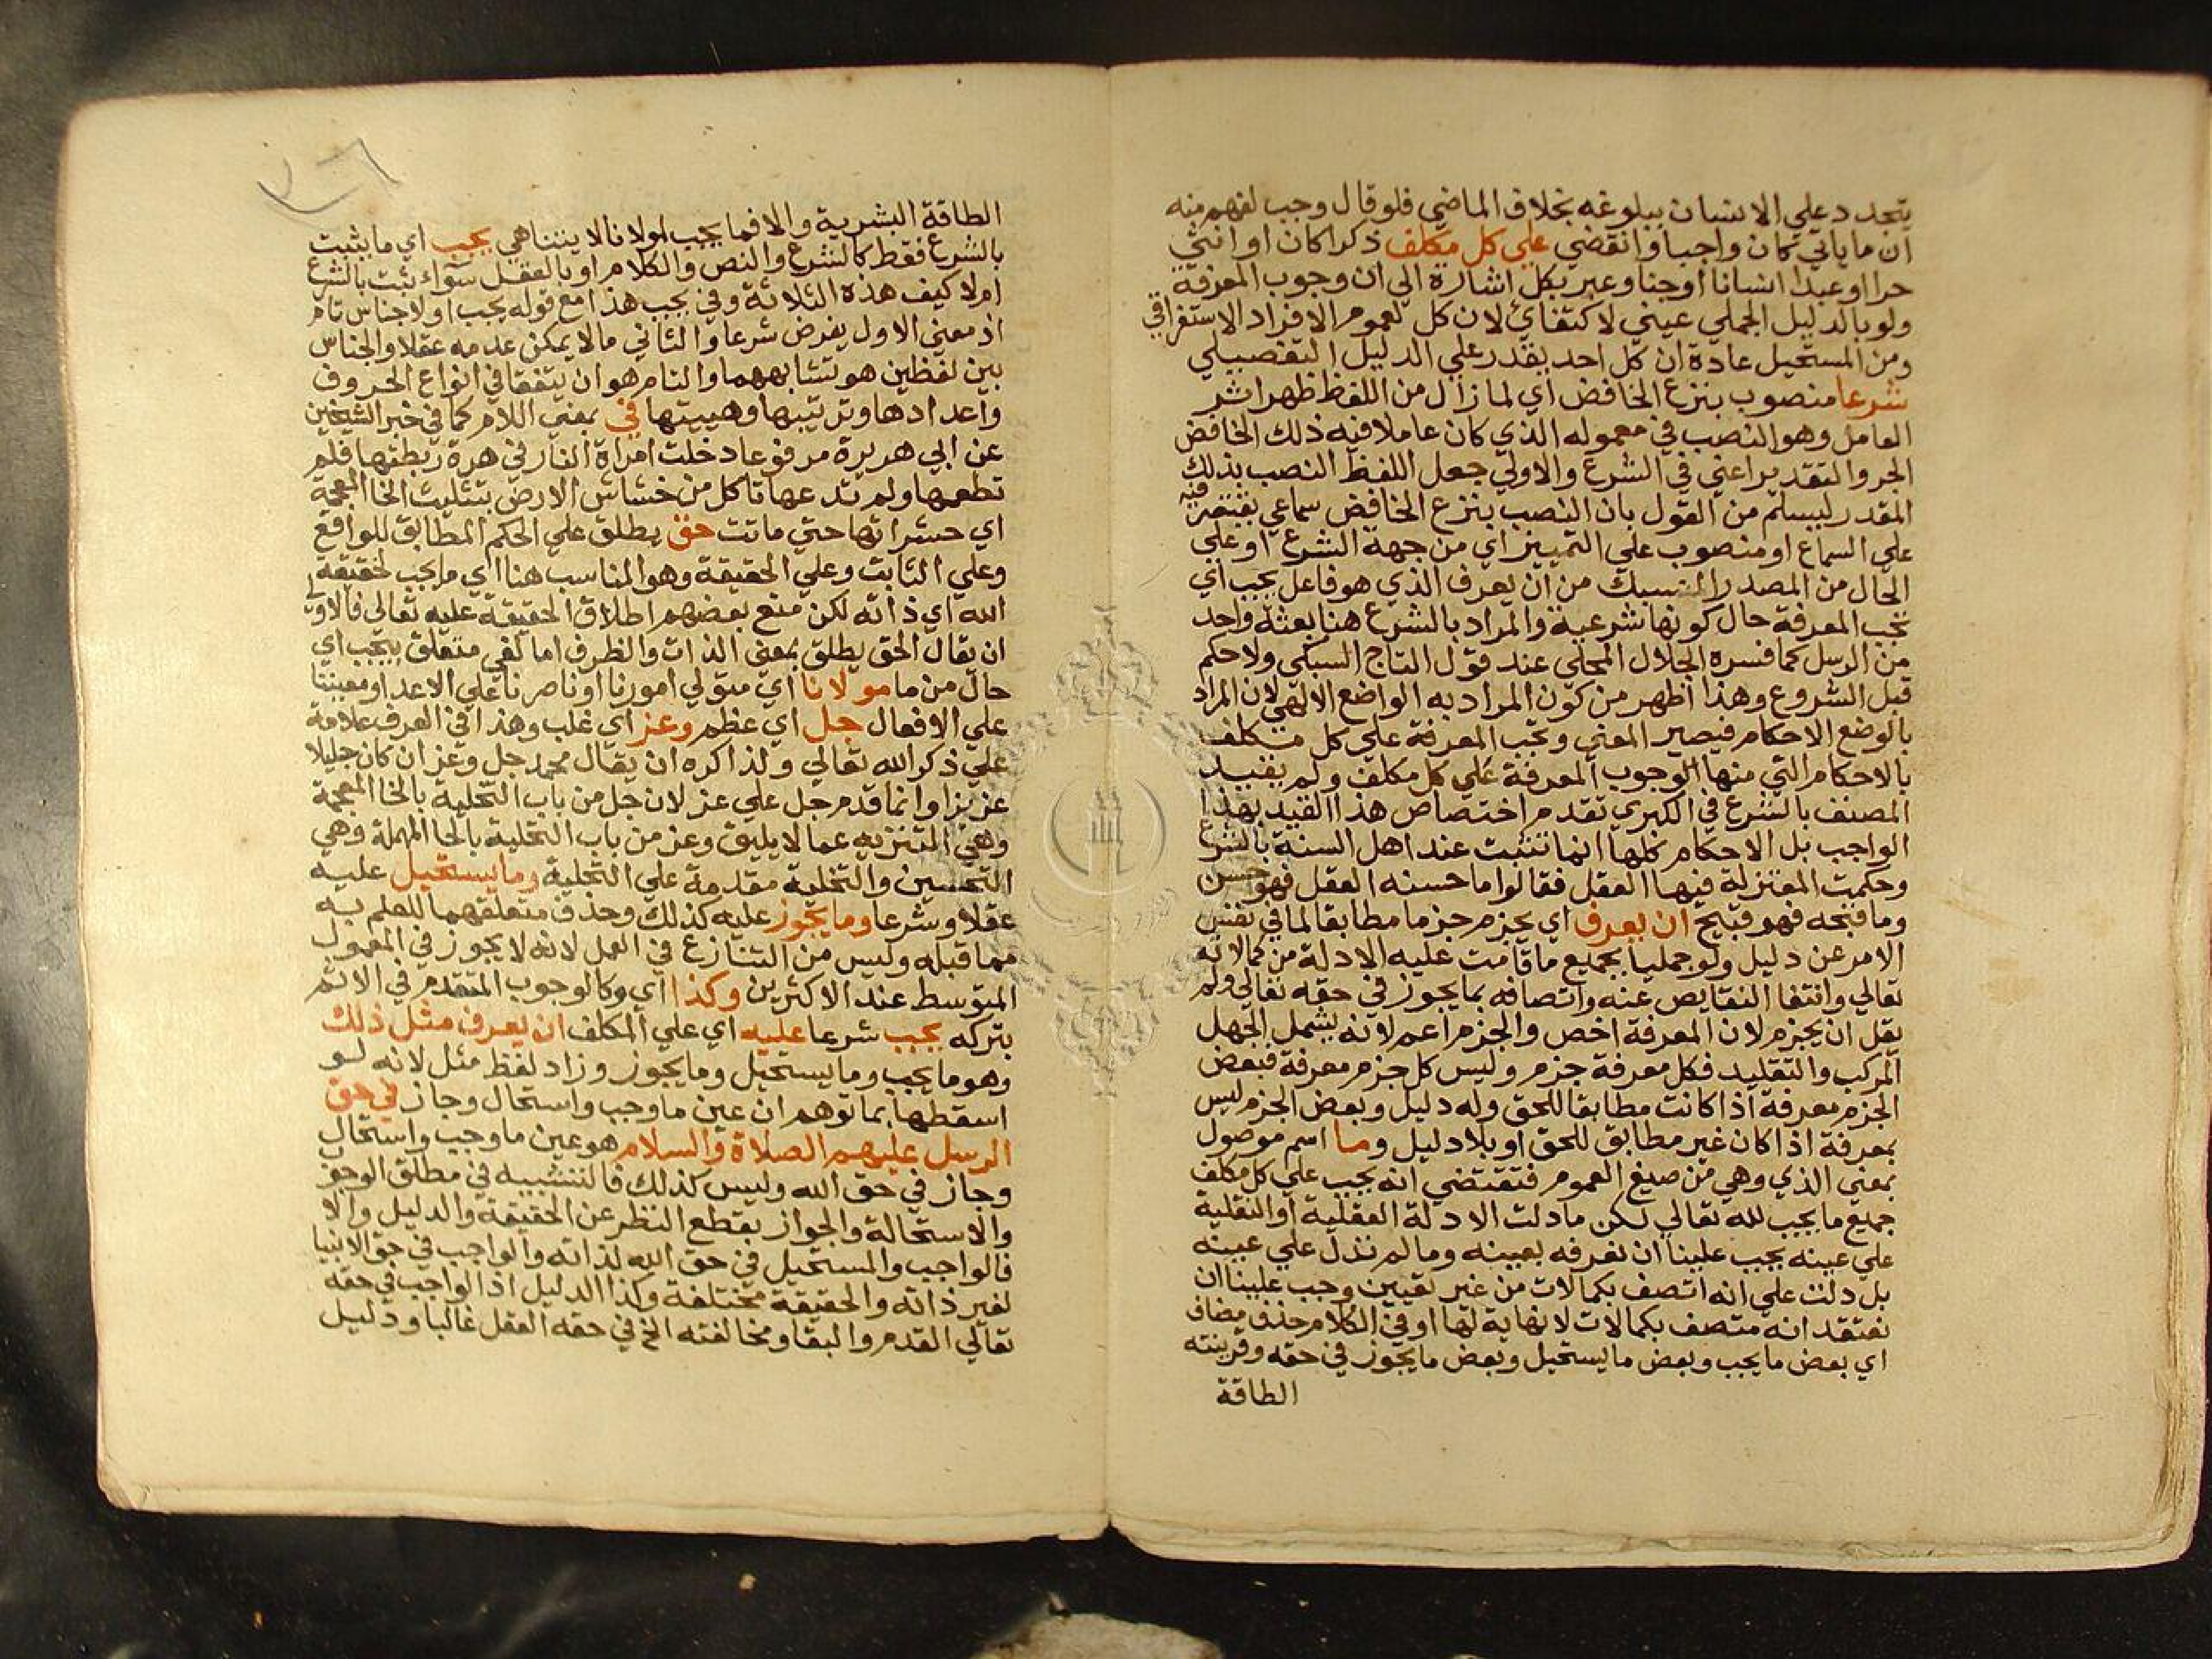 يتجدد علي الانسان ببلوغه بخلاف الماضي فلو قال وجب لفهم منه
ان ما ياتي كان واجبا وانقضي علي كل مكلف ذكرا كان او انثي
حرا او عبدا انسانا او جنا وعبر بكل اشارة الي ان وجوب المعرفة
ولو بالدليل الجملي عيني لا كفائي لان كل لعموم الافراد الاستغراقي
ومن المستحيل عادة ان كل احد يقدر علي الدليل التفصيلي
شرعا منصوب بنزع الخافض اي لما زال من اللفظ ظهر اثر
العامل وهو النصب في معموله الذي كان عاملا فيه ذلك الخافض
الجر والتقدير اعني في الشرع والاولي جعل اللفظ النصب بذلك
المقدر ليسلم من القول بان النصب بنزع الخافض سماعي يقتصر فيه
علي السماع او منصوب علي التمييز اي من جهة الشرع او علي
الحال من المصدر المنسبك من ان يعرف الذي هو فاعل يجب اي
تجب المعرفة حال كونها شرعية والمراد بالشرع هنا بعثة واحد
من الرسل كما فسره الجلال المحلي عند قول التاج السبكي ولا حكم
قبل الشروع وهذا اظهر من كون المراد به الواضع الالهي لان المراد
بالوضع الاحكام فيصير المعني وتجب المعرفة علي كل مكلف
بالاحكام التي منها الوجوب المعرفة علي كل مكلف ولم يقيد
المصنف بالشرع في الكبري تقدم اختصاص هذا القيد بهذا
الواجب بل الاحكام كلها انما تثبت عند اهل السنة بالشرع
وحكمت المعتزلة فيها العقل فقالوا ما حسنه العقل فهو حسن
وما قبحه فهو قبيح ان يعرف اي يجزم جزما مطابقا لما في نفس
الامر عن دليل ولو جمليا بجميع ما قامت عليه الادلة من كمالاته
تعالي وانتفا النقايص عنه واتصافه بما يجوز في حقه تعالي ولم
يقل ان يجزم لان المعرفة اخص والجزم اعم لانه يشمل الجهل
المركب والتقليد فكل معرفة جزم وليس كل جزم معرفة فبعض
الجزم معرفة اذا كانت مطابقا للحق وله دليل وبعض الجزم ليس
بمعرفة اذا كان غير مطابق للحق او بلا دليل وما اسم موصول
بمعني الذي وهي من صيغ العموم فتقتضي انه يجب علي كل مكلف
جميع ما يجب لله تعالي لكن ما دلت الادلة العقلية او النقلية
علي عينه يجب علينا ان نعرفه بعينه وما لم تدل علي عينه
بل دلت علي انه اتصف بكمالات من غير تعيين وجب علينا ان
نعتقد انه متصف بكمالات لا نهاية لها او في الكلام حذف مضاف
اي بعض ما يجب وبعض ما يستحيل وبعض ما يجوز في حقه وقرينته
الطاقة
الطاقة البشرية والا فما يجب لمولانا لا يتناهي يجب اي ما يثبت
بالشرع فقط كالشرع والنص والكلام او بالعقل سواء ثبت بالشرع
ام لا كيف هذه الثلاثة وفي يجب هذا مع قوله يجب اولا جناس تام
اذ معني الاول يفرض شرعا والثاني ما لا يمكن عدمه عقلا والجناس
بين لفظين هو تشابههما والتام هو ان يتفقا في انواع الحروف
واعدادها وترتيبها وهييتها في بمعني اللام كما في خبر الشيخين
عن ابي هريرة مرفوعا دخلت امراة النار في هرة ربطتها فلم
تطعمها ولم تدعها تاكل من خشاش الارض بتثليث الخا المعجمة
اي حشراتها حتي ماتت حق يطلق علي الحكم المطابق للواقع
وعلي الثابت وعلي الحقيقة وهو المناسب هنا اي ما يجب لحقيقة
الله اي ذاته لكن منع بعضهم اطلاق الحقيقة عليه تعالي فالاولي
ان يقال الحق يطلق بمعني الذات والظرف اما لغو متعلق بيجب اي
حال من ما مولانا اي متولي امورنا او ناصرنا علي الاعدا ومعيننا
علي الافعال جل اي عظم وعز اي غلب وهذا في العرف علامة
علي ذكر الله تعالي ولذا كره ان يقال محمد جل وعز ان كان جليلا
عزيزا وانما قدم جل علي عز لان جل من باب التخلية بالخا المعجمة
وهي التنزيه عما لا يليق وعز من باب التحلية بالحا المهملة وهي
التحسين والتخلية مقدمة علي التحلية وما يستحيل عليه
عقلا وشرعا وما يجوز عليه كذلك وحذف متعلقهما للعلم به
مما قبله وليس من التنازع في العمل لانه لا يجوز في المعمول
المتوسط عند الاكثرين وكذا اي وكالوجوب المتقدم في الاثم
بتركه يجب شرعا عليه اي علي المكلف ان يعرف مثل ذلك
وهو ما يجب وما يستحيل وما يجوز وزاد لفظ مثل لانه لو
اسقطها بما توهم ان عين ما وجب واستحال وجاز في حق
الرسل عليهم الصلاة والسلام هو عين ما وجب واستحال
وجاز في حق الله وليس كذلك فالتشبيه في مطلق الوجوب
والاستحالة والجواز بقطع النظر عن الحقيقة والدليل والا
فالواجب والمستحيل في حق الله لذاته والواجب في حق الانبيا
لغير ذاته والحقيقة مختلفة وكذا الدليل اذ الواجب في حقه
تعالي القدم والبقا ومخالفته الخ في حقه العقل غالبا ودليل